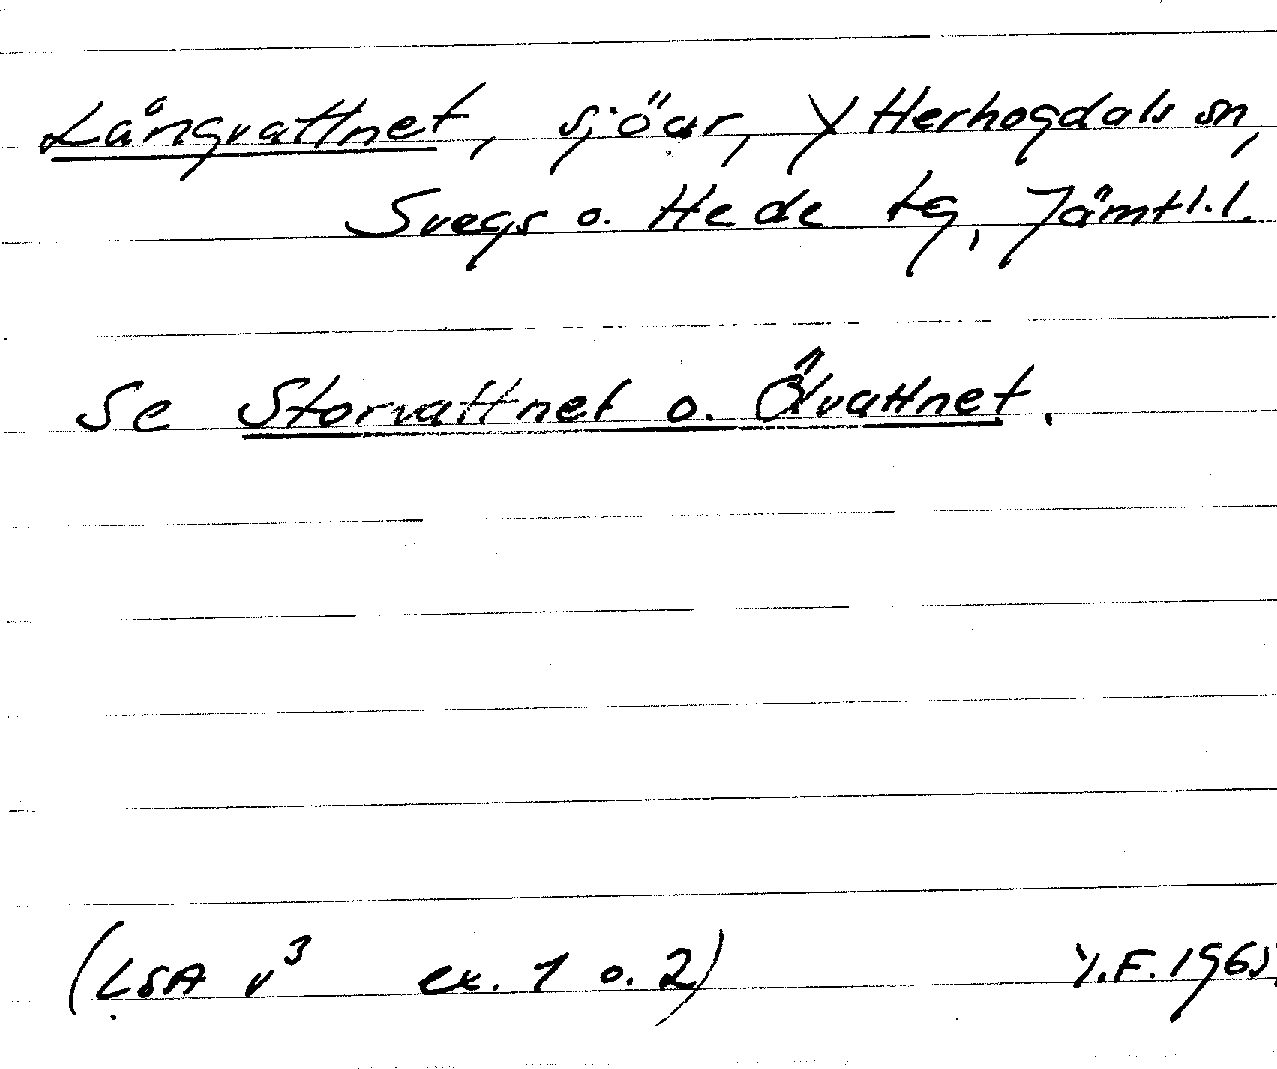 Långvattnet, sjöar, Ytterhogdals sn,
Svegs o. Hede tg, Jämtl.l.
Se Storvattnet o. Ölvattnet.
(LSA v³ ex. 1 o. 2) Y.F. 1965